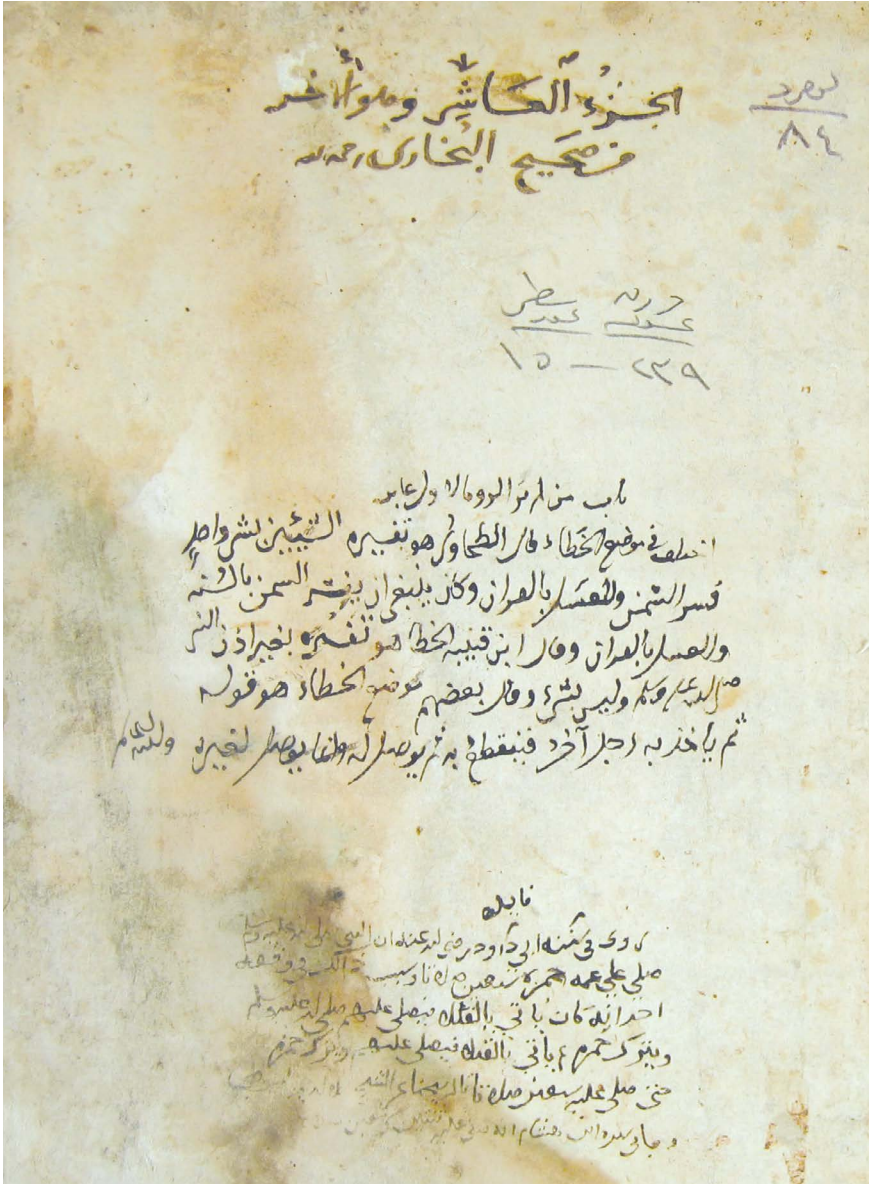 الجزء العاشر وهو الاخر
من صحيح البخاري رحمه الله
٨٤
ورق سطر
عدد
٢٣٩ — ١٥
باب من لم ير الرويا لاول عابر
اختلف في موضع الخطاء فقال الطحاوي هو تفسيره الشيئين بشي واحدٍ
فسر السمن والعسل بالقران وكان ينبغي ان يفسر السمن بالسنة
والعسل بالقران وقال ابن قتيبة الخطا هو تفسيره بغير اذن النبي
صلى الله عليه وسلم وليس بشي وقال بعضهم موضع الخطاء هو قوله
ثم ياخذ به رجل آخر فينقطع به ثم يوصل له وانما يوصل لغيره والله اعلم
فايده
روى في سننه ابي داود رضي الله عنه ان النبي صلى الله عليه وسلم
صلى على عمه حمزه سبعين صلاة وسبب ذالك في وقعة
احد انه كان ياتي بالقتلا فيصلي عليهم صلى الله عليه وسلم
ويترك حمزه وياتي بالقتلا فيصلي عليهم ويترك حمزه
حتى صلى عليه سبعين صلاة